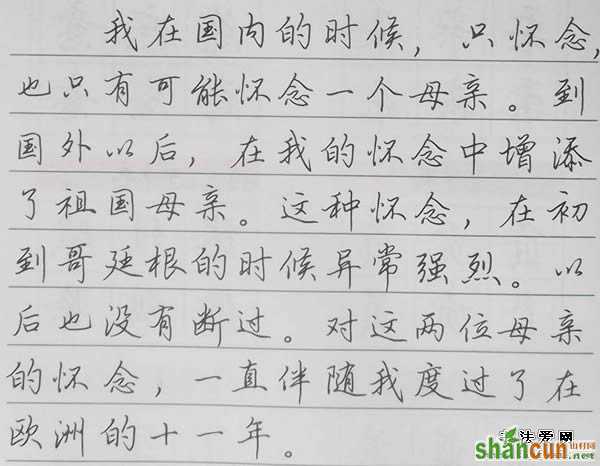 我在国内的时候，只怀念，
也只有可能怀念一个母亲。到
国外以后，在我的怀念中增添
了祖国母亲。这种怀念，在初
到哥廷根的时候异常强烈。以
后也没有断过。对这两位母亲
的怀念，一直伴随我度过了在
欧洲的十一年。
法爱网
shancun
山村网
.net